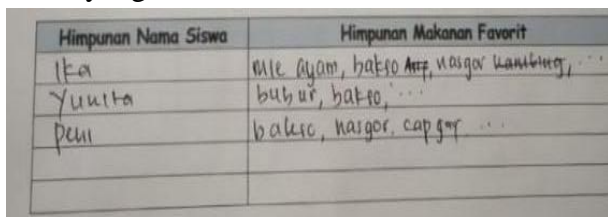 Himpunan Nama Siswa Himpunan Makanan Favorit
Ika mie ayam, bakso, nasgor kambing, ...
Yunita bubur, bakso, ...
Peni bakso, nasgor, capgor ...